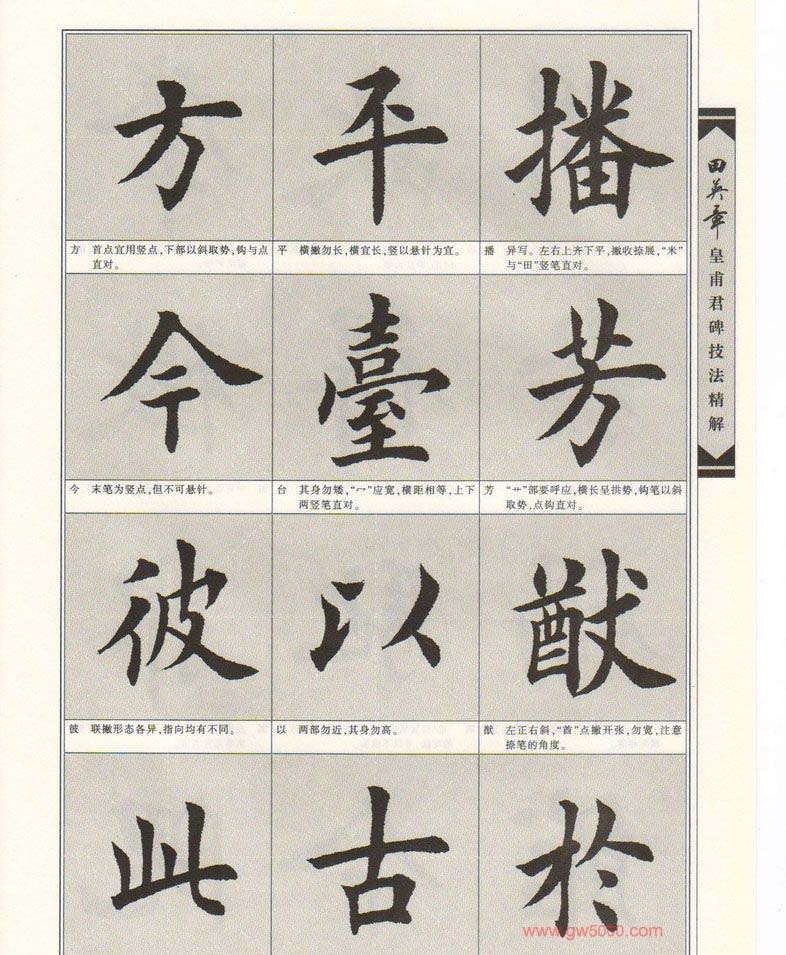 方 平 播
方 首点宜用竖点,下部以斜取势,钩与点
直对。
平 横撇勿长,横宜长,竖以悬针为宜。
播 异写。左右上齐下平,撇收捺展,“米”
与“田”竖笔直对。
今 臺 芳
今 末笔为竖点,但不可悬针。
台 其身勿矮,“冖”应宽,横距相等,上下
两竖笔直对。
芳 “艹”部要呼应,横长呈拱势,钩笔以斜
取势,点钩直对。
彼 以 猷
彼 联撇形态各异,指向均有不同。
以 两部勿近,其身勿高。
猷 左正右斜,“酋”点撇开张,勿宽,注意
捺笔的角度。
此 古 於
田英章皇甫君碑技法精解
www.gw5000.com